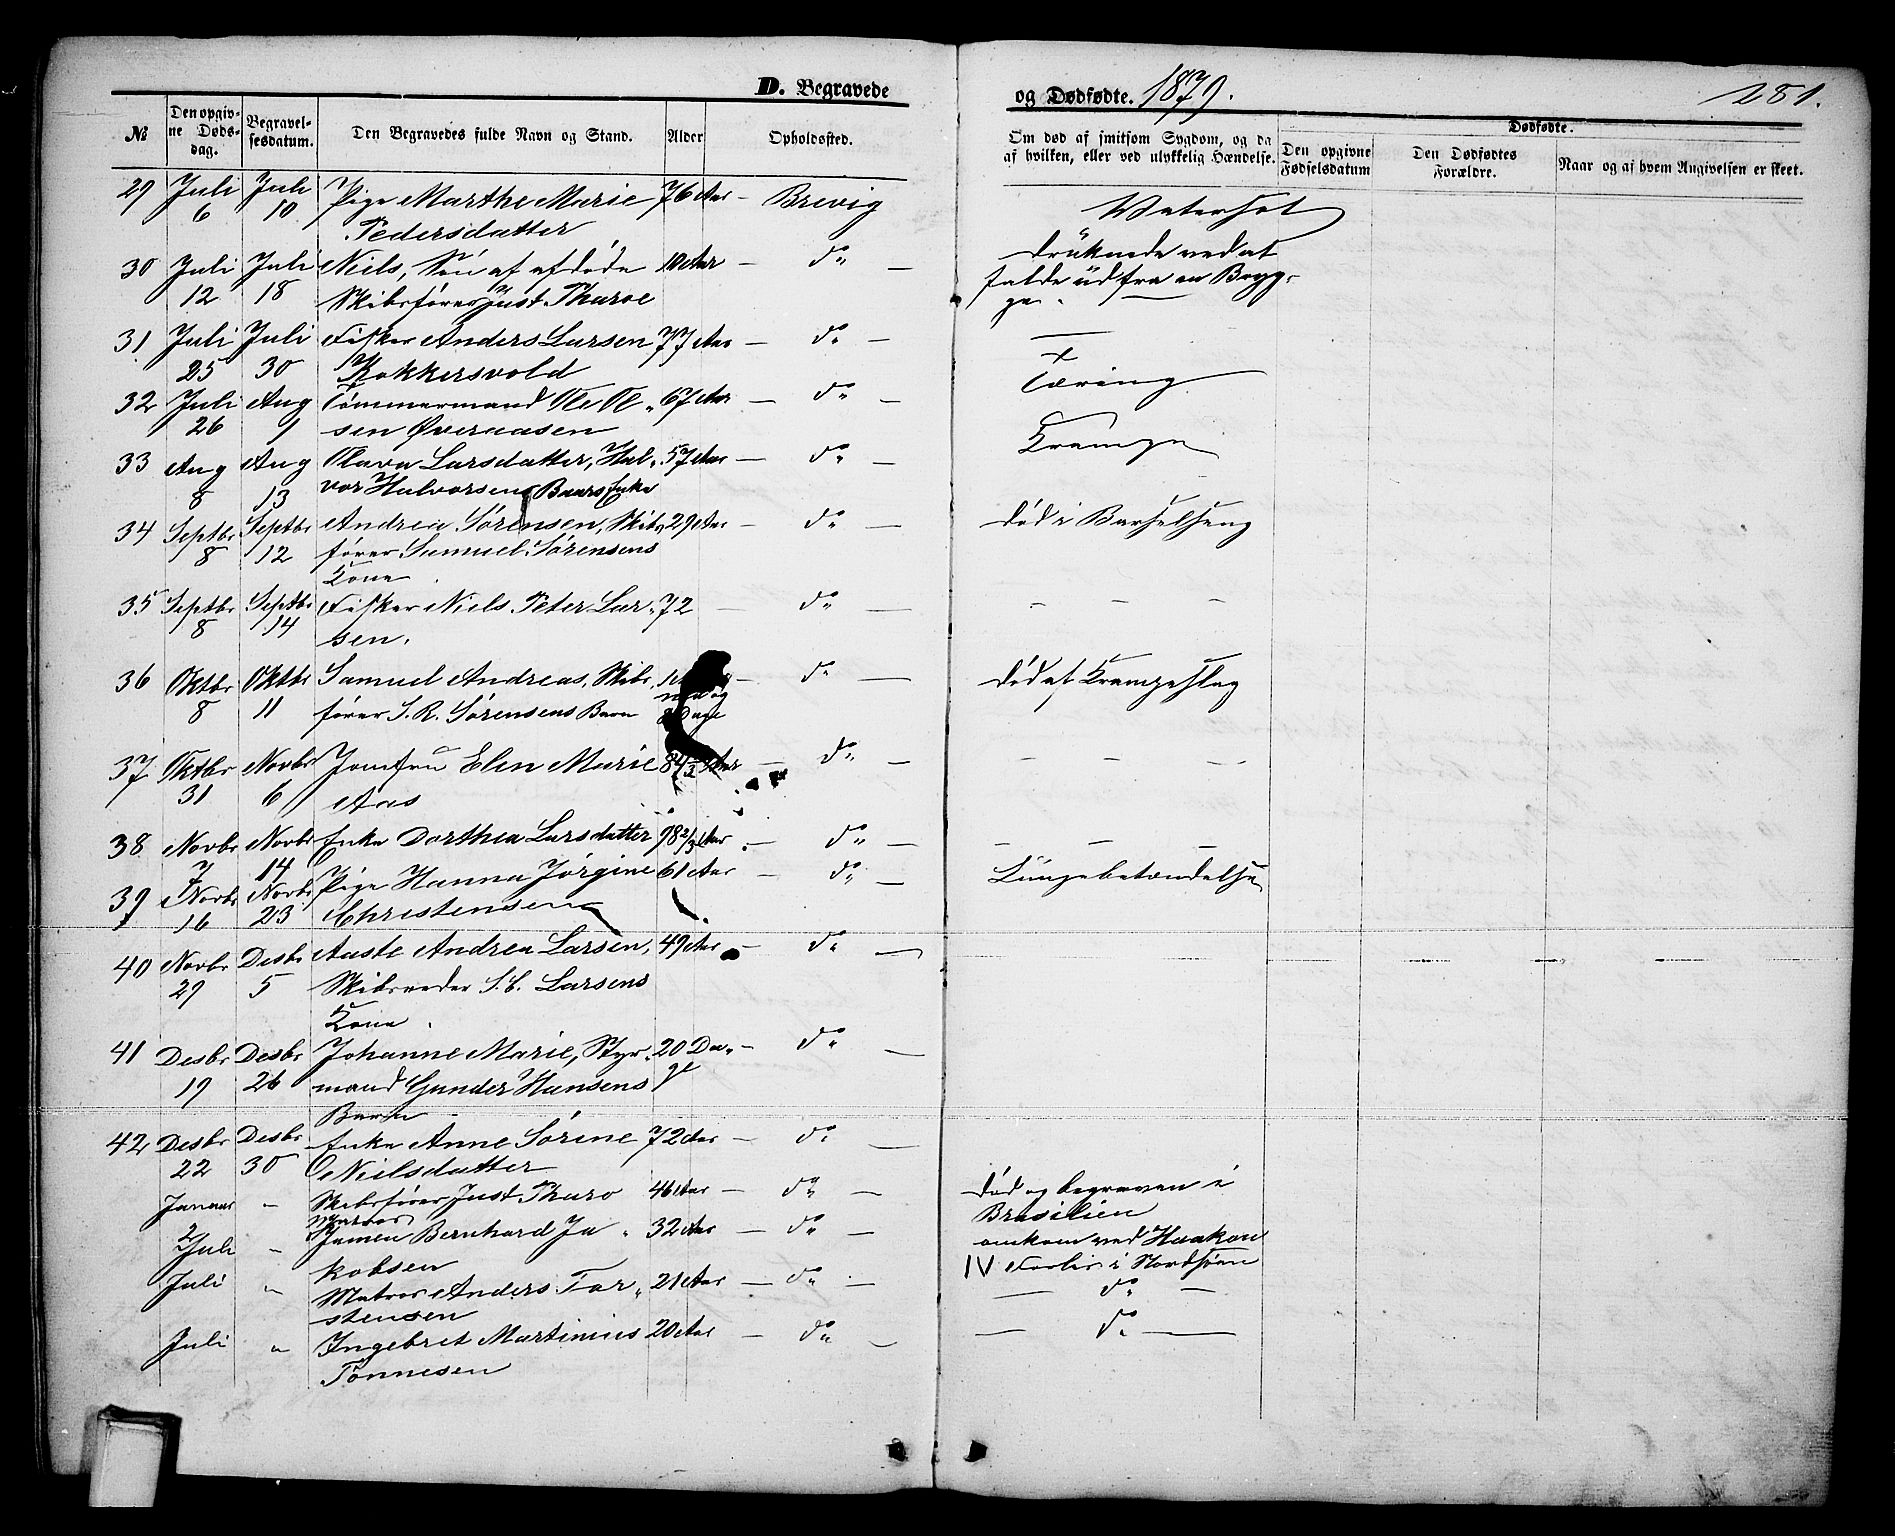 D. Begravede
og Dødfødte. 1879.
281.
№
Den opgiv-
ne Døds-
dag.
Begravel-
sesdatum.
Den Begravedes fulde Navn og Stand.
Alder
Opholdssted.
Om død af smitsom Sygdom, og da
af hvilken, eller ved ulykkelig Hændelse.
Dødfødte.
Den opgivne
Fødselsdatum
Den Dødfødtes
Forældre.
Naar og af hvem Angivelsen er skeet.
29 Juli Juli Pige Marthe Marie 76 Aar – Brevig Vatersot
6 10 Pedersdatter
30 Juli Juli Niels, Søn af afdøde 10 Aar – do — druknede ved at
12 18 Skibsfører Just Thuroe falde üd fra en Bryg-
ge. —
31 Juli Juli Fisker Anders Larsen 77 Aar – do – —
25 30 Kokkersvold
32 Juli Aug Tømmermand Ole Ol- 67 Aar – do – Tæring
26 1 sen Øveraasen
33 Aug Aug Olava Larsdatter, Hal- 57 Aar – do – Krampe
8 13 vor Halvorsen Baars Enke
34 Septbr Septbr Andrea Sørensen, Skibs- 29 Aar – do – død i Barselseng
8 12 fører Samuel Sørensens
Kone.
35 Septbr Septbr Fisker Niels Peter Lar- 72 – do — – – –
8 14 sen.
36 Oktbr Oktbr Samuel Andreas, Skibs- 1 – do — død af Krampeslag
8 11 fører S. R. Sørensens Barn og
8 Dage
37 Oktbr Novbr Jomfru Elen Marie 84 1/3 Aar – do – – – –
31 6 Aas
38 Novbr Novbr Enke Dorthea Larsdatter 78 2/3 Aar. – do – – – –
7 14
39 Novbr Novbr Pige Hanna Jørgine 61 Aar – do – Lüngebetændelse
16 23 Christensen
40 Novbr Desbr Aaste Andrea Larsen, 49 Aar – do —
29 5 Skibsreder S. C. Larsens
Kone.
41 Desbr Desbr Johanne Marie, Styr- 20 Da- – do —
19 26 mand Gunder Hansens ge
Barn
42 Desbr Desbr Enke Anne Sørine 72 Aar – do —
22 30 Nielsdatter
Januar " Skibsfører Just Thuro 46 Aar – do – død og begraven i
2 Brasilien
Matros
Juli " Jamen Bernhard Ja- 32 Aar – do – omkom ved Haakon
kobsen IV Forlis i Nordsøen
Juli " Matros Anders Tor- 21 Aar – do – — do –
stensen
Juli " Ingebret Martinius 20 Aar – do – — do —
Tønnesen